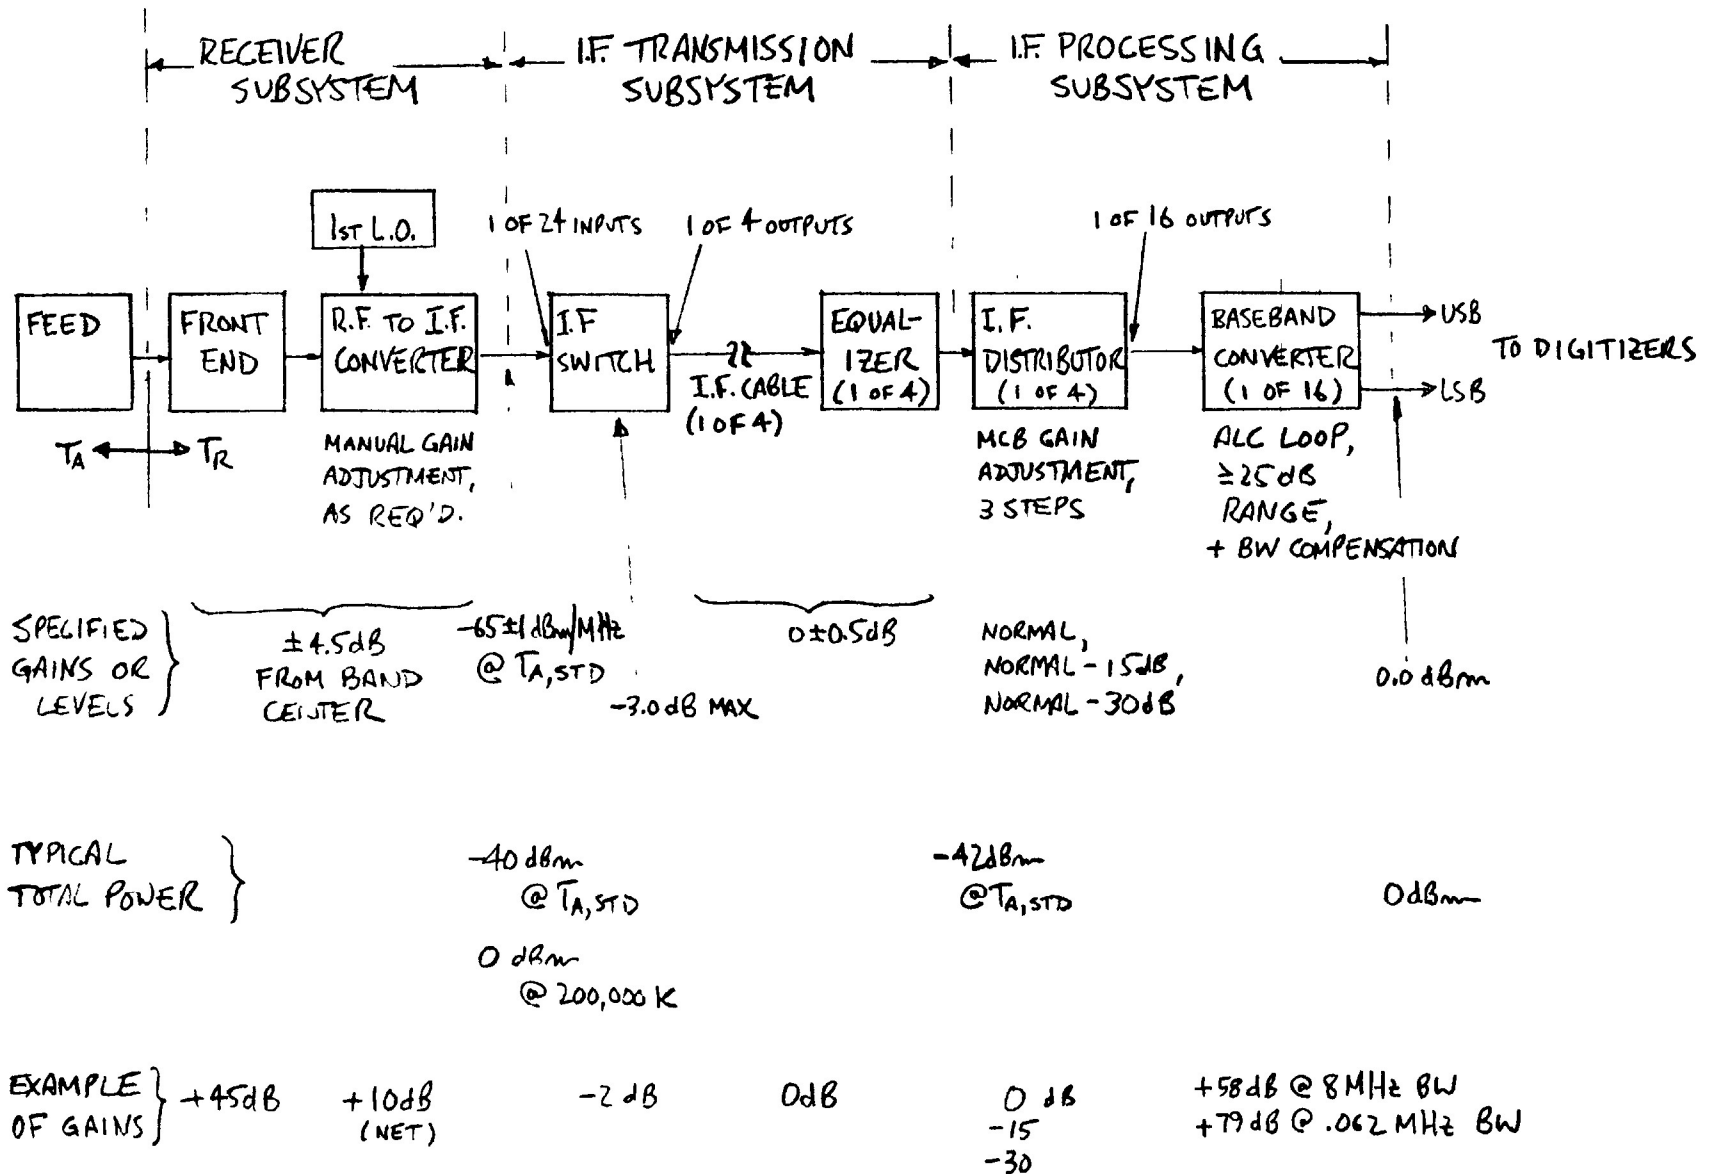 RECEIVER
SUBSYSTEM
I.F. TRANSMISSION
SUBSYSTEM
I.F. PROCESSING
SUBSYSTEM
1ST L.O.
1 OF 24 INPUTS
1 OF 4 OUTPUTS
1 OF 16 OUTPUTS
FEED
FRONT
END
R.F. TO I.F.
CONVERTER
I.F
SWITCH
I.F. CABLE
(1 OF 4)
EQUAL-
IZER
(1 OF 4)
I.F.
DISTRIBUTOR
(1 OF 4)
BASEBAND
CONVERTER
(1 OF 16)
USB
LSB
TO DIGITIZERS
TA
TR
MANUAL GAIN
ADJUSTMENT,
AS REQ'D.
MCB GAIN
ADJUSTMENT,
3 STEPS
ALC LOOP,
≥25 dB
RANGE,
+ BW COMPENSATION
SPECIFIED
GAINS OR
LEVELS
±4.5dB
FROM BAND
CENTER
-65±1 dBm/MHz
@ TA,STD
-3.0 dB MAX
0±0.5dB
NORMAL,
NORMAL - 15dB,
NORMAL - 30dB
0.0 dBm
TYPICAL
TOTAL POWER
-40 dBm
@ TA,STD
0 dBm
@ 200,000 K
-42dBm
@ TA,STD
0 dBm
EXAMPLE
OF GAINS
+45dB
+10dB
(NET)
-2 dB
0dB
0 dB
-15
-30
+58dB @ 8 MHz BW
+79dB @ .062 MHz BW